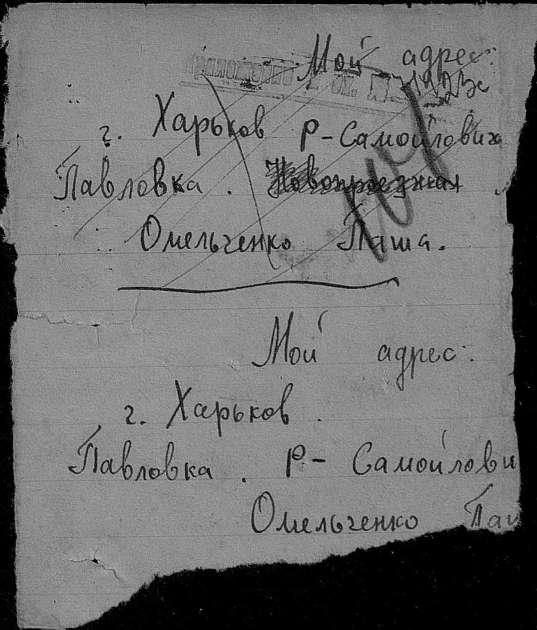 Мой адрес:
г. Харьков р-Самойлович
Павловка.
Омельченко Паша.
Мой адрес:
г. Харьков.
Павловка. р- Самойлови
Омельченко Паш